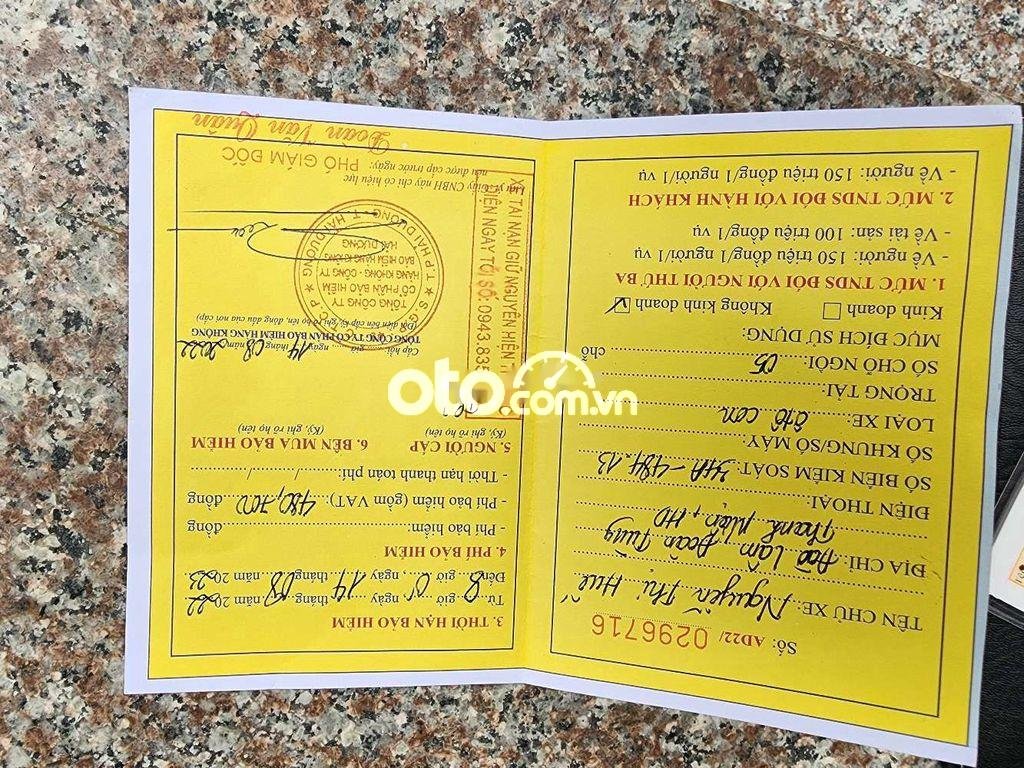 Số: AD22/ 0296716
TÊN CHỦ XE: Nguyễn Thị Huê
ĐỊA CHỈ: Lâm, Đoàn Tùng
Thanh Miện, HD
ĐIỆN THOẠI:
SỐ BIỂN KIỂM SOÁT: 34A-484.13
SỐ KHUNG/SỐ MÁY:
LOẠI XE: ôtô con
TRỌNG TẢI:
SỐ CHỖ NGỒI: 05 chỗ
MỤC ĐÍCH SỬ DỤNG:
Kinh doanh Không kinh doanh
1. MỨC TNDS ĐỐI VỚI NGƯỜI THỨ BA
- Về người: 150 triệu đồng/1 người/1 vụ
- Về tài sản: 100 triệu đồng/1 vụ
2. MỨC TNDS ĐỐI VỚI HÀNH KHÁCH
- Về người: 150 triệu đồng/1 người/1 vụ
3. THỜI HẠN BẢO HIỂM
Từ giờ, ngày 14 tháng 08 năm 2022
Đến giờ, ngày 14 tháng 08 năm 2023
4. PHÍ BẢO HIỂM
- Phí bảo hiểm: đồng
- Phí bảo hiểm (gồm VAT): 480,700 đồng
- Thời hạn thanh toán phí: / /
5. NGƯỜI CẤP 6. BÊN MUA BẢO HIỂM
(Ký, ghi rõ họ tên) (Ký, ghi rõ họ tên)
Cấp hồi: giờ, ngày 14 08 năm 2022
TỔNG CÔNG TY CỔ PHẦN BẢO HIỂM HÀNG KHÔNG
(Đại diện bên cấp ký, ghi rõ họ tên, đóng dấu của nơi cấp)
TỔNG CÔNG TY
CỔ PHẦN BẢO HIỂM
HÀNG KHÔNG - CÔNG TY
BẢO HIỂM HÀNG KHÔNG
HẢI DƯƠNG
T.P HẢI DƯƠNG - T. HẢI DƯƠNG
Lưu ý: Giấy CNBH này chỉ có hiệu lực
nếu được cấp trước ngày:
PHÓ GIÁM ĐỐC
Đoàn Văn Quân
TAI NẠN GIỮ NGUYÊN HIỆN
ĐIỆN NGAY TỚI SỐ: 0943.835
oto.com.vn